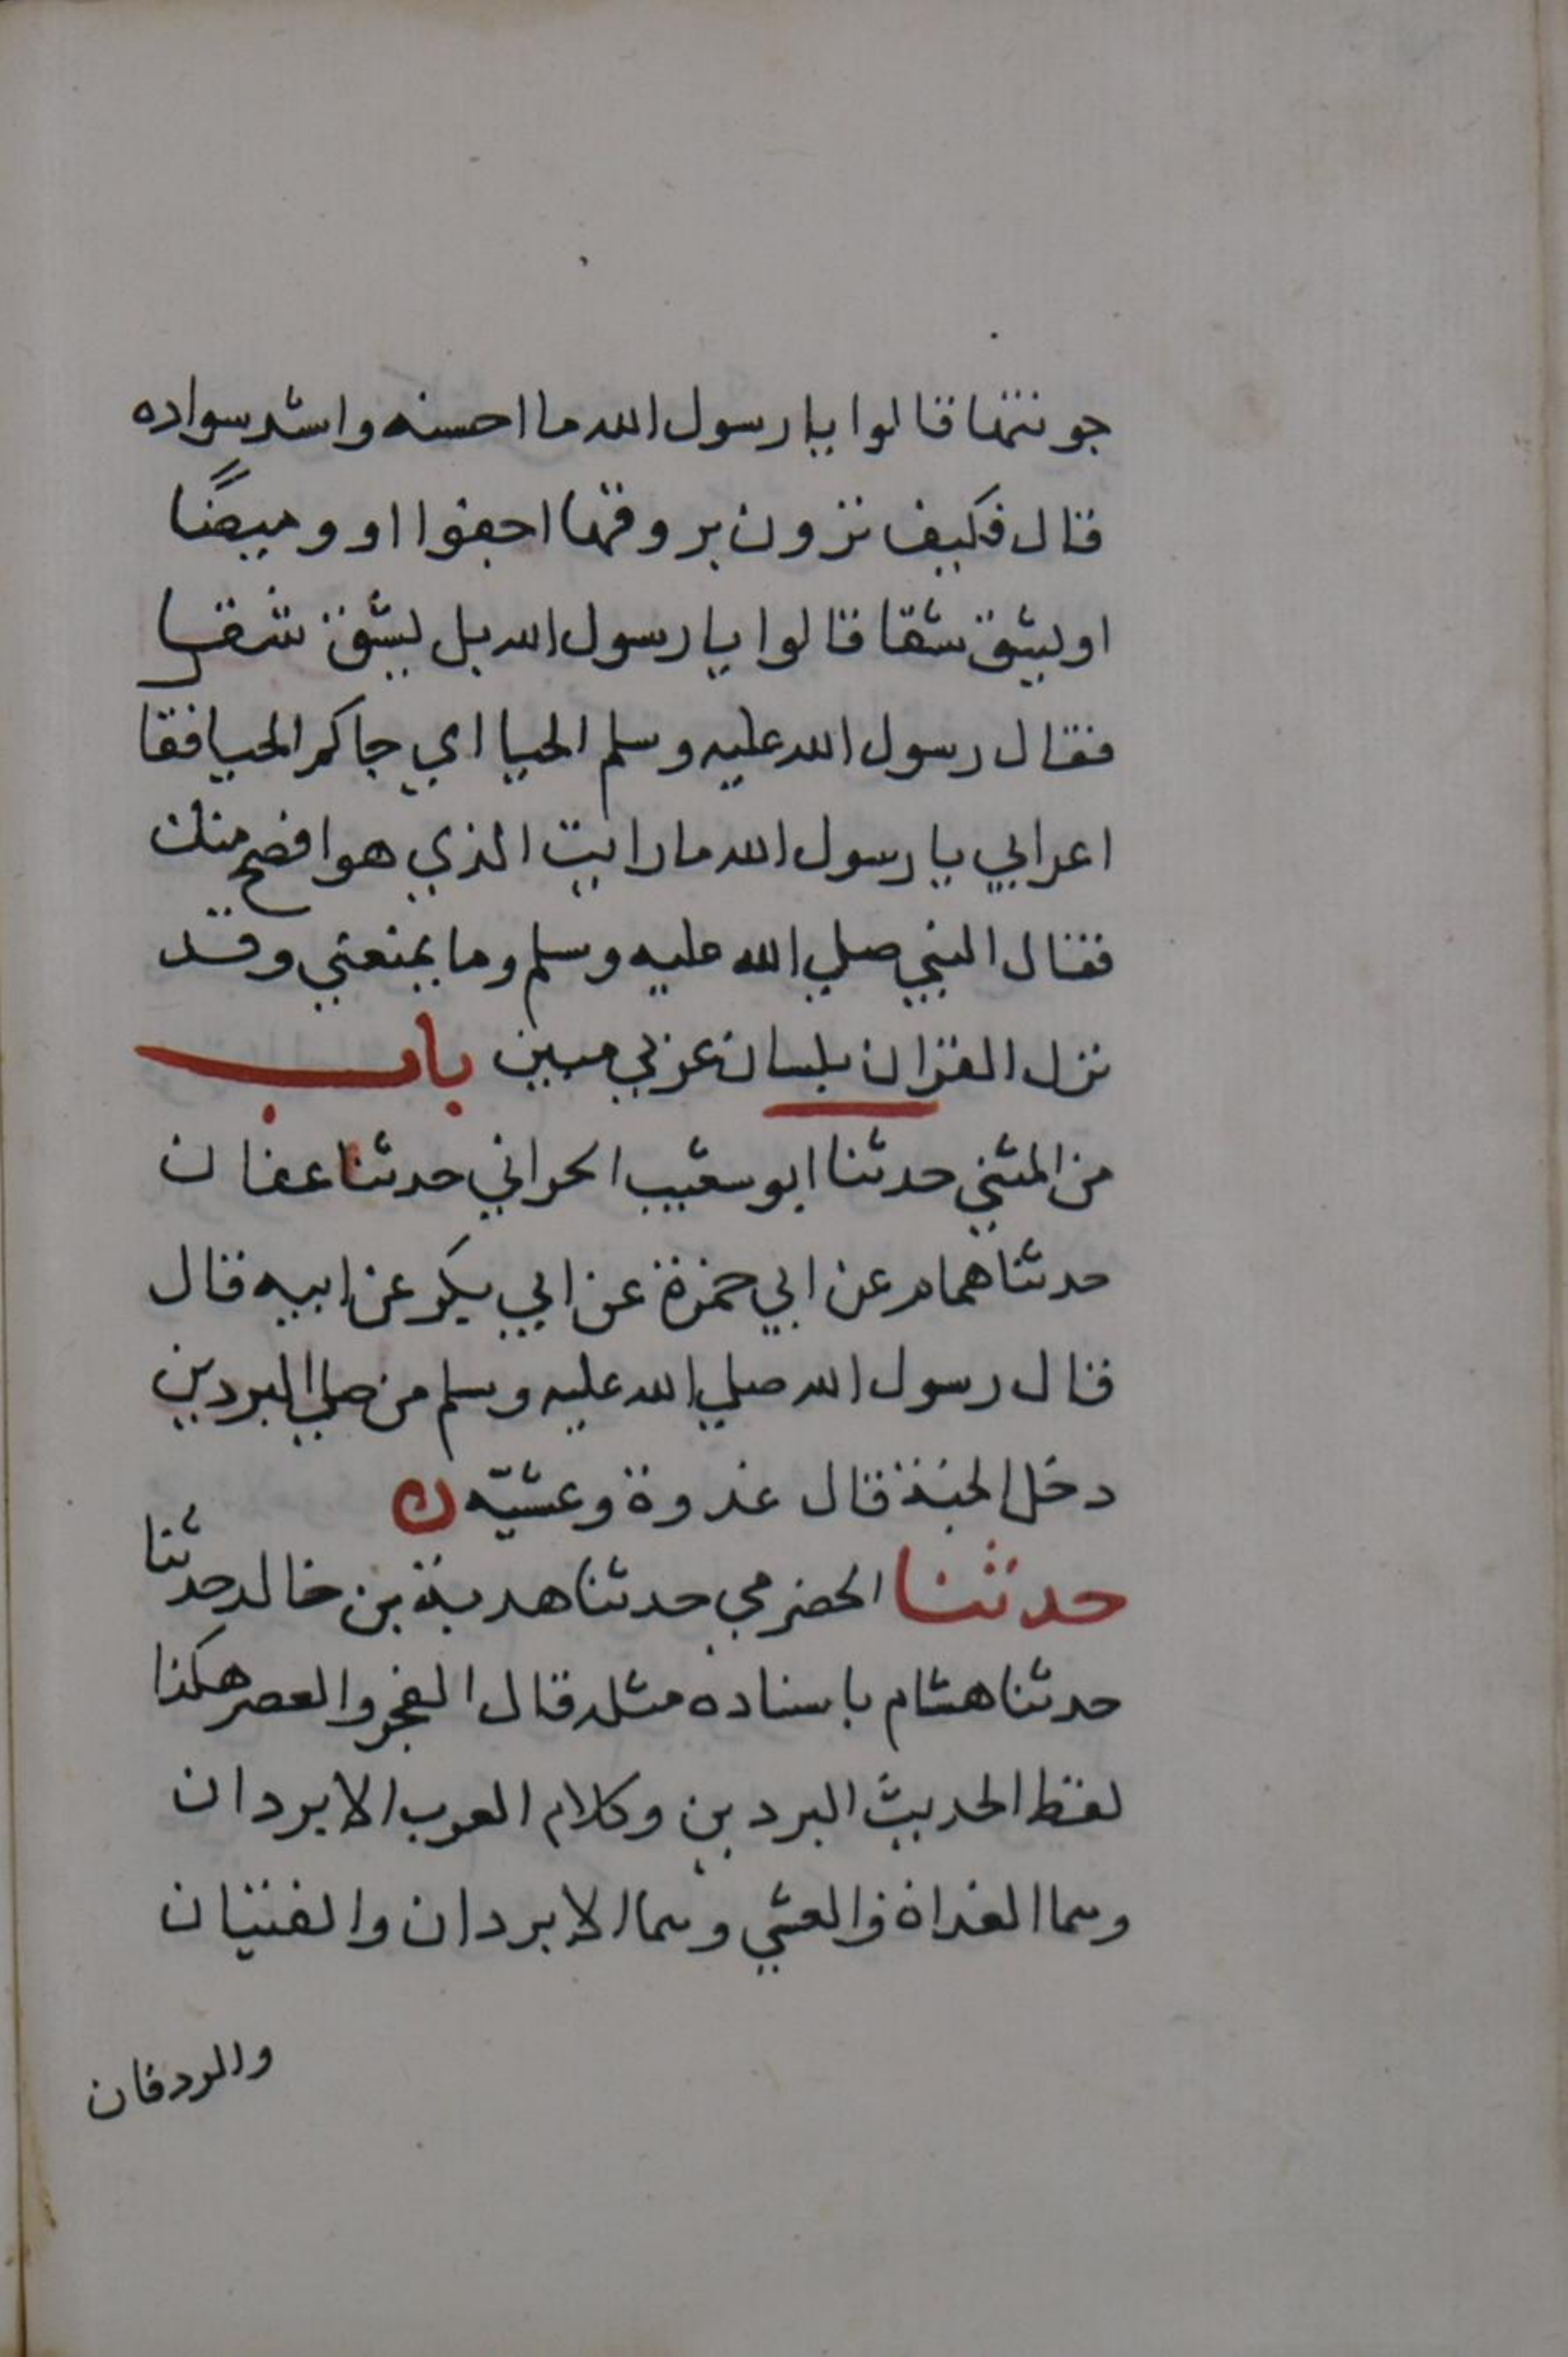 جونتها قالوا يا رسول الله ما احسنه واشد سواده
قال فكيف ترون بروقها احفوا او وميضًا
او يشق شقا قالوا يا رسول الله بل يشق شقا
فقال رسول الله عليه وسلم الحيا اي جاكم الحيا فقا
اعرابي يا رسول الله ما رايت الذي هو افصح منك
فقال النبي صلي الله عليه وسلم وما يمنعني وقد
نزل القران بلسان عربي مبين باب
من المثني حدثنا ابو سعيب الحراني حدثنا عفان
حدثنا همام عن ابي حمزة عن ابي بكر عن ابيه قال
قال رسول الله صلي الله عليه وسلم من صلي البردين
دخل الجنة قال غدوة وعشيّه ن
حدثنا الحضرمي حدثنا هدبة بن خالد حدثنا
حدثنا هشام باسناده مثله قال الفجر والعصر هكذا
لفظ الحديث البردين وكلام العرب الابردان
وهما الغداة والعشي وهما الابردان والفتيان
والردفان